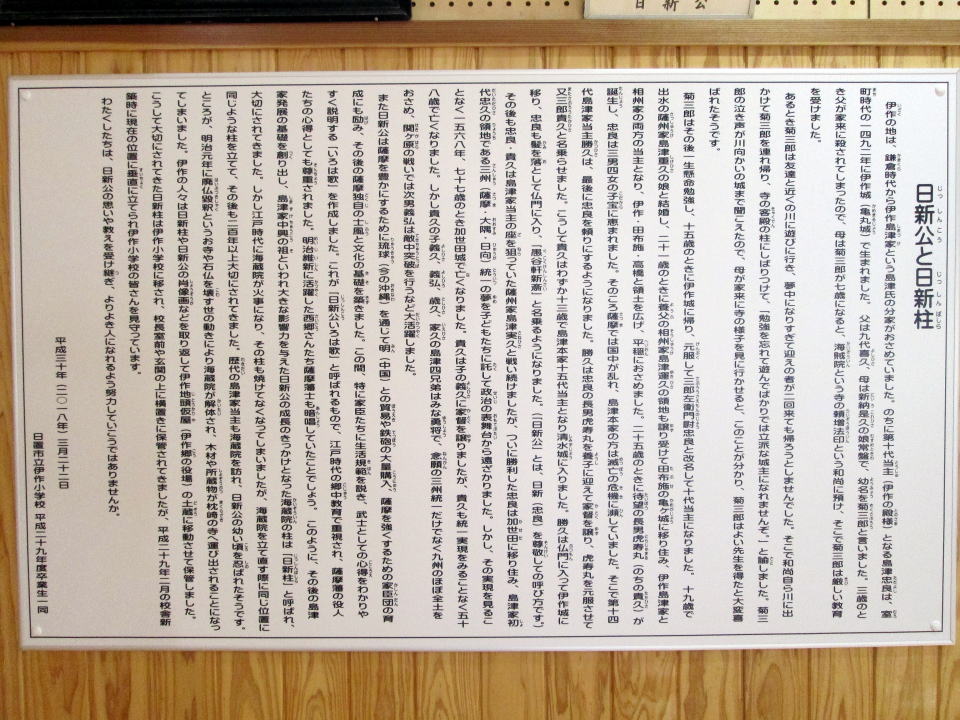 日新公
日新公と日新柱
じっしんこう じっしんばしら
伊作の地は、鎌倉時代から伊作島津家という島津氏の分家がおさめていました。のちに第十代当主（伊作の殿様）となる島津忠良は、室
町時代の一四九二年に伊作城（亀丸城）で生まれました。父は九代善久、母は新納是久の娘常盤で、幼名を菊三郎と言いました。三歳のと
き父が家来に殺されてしまったので、母は菊三郎が七歳になると、海蔵院という寺の頼増法印という和尚に預け、そこで菊三郎は厳しい教育
を受けました。
あるとき菊三郎は友達と近くの川に遊びに行き、夢中になりすぎて迎えの者が二回来ても帰ろうとしませんでした。そこで和尚自ら川に出
かけて菊三郎を連れ帰り、寺の客殿の柱にしばりつけて、「勉強を忘れて遊んでばかりでは立派な城主になれませんぞ。」と諭しました。菊三
郎の泣き声が川向かいの城まで聞こえたので、母が家来に寺の様子を見に行かせると、このことが分かり、菊三郎はよい先生を得たと大変喜
ばれたそうです。
菊三郎はその後一生懸命勉強し、十五歳のときに伊作城に帰り、元服して三郎左衛門尉忠良と改名して十代当主になりました。十九歳で
出水の薩州家島津重久の娘と結婚し、二十一歳のときに養父の相州家島津運久の領地も譲り受けて田布施の亀ヶ城に移り住み、伊作島津家と
相州家の両方の当主となり、伊作・田布施・高橋と領土を広げ、平穏におさめました。二十五歳のときに待望の長男虎寿丸（のちの貴久）が
誕生し、忠良は三男四女の子宝に恵まれました。そのころ薩摩では国中が乱れ、島津本家の方は滅亡の危機に瀕していました。そこで第十四
代島津家当主勝久は、最後に忠良を頼りにするようになりました。勝久は忠良の長男虎寿丸を養子に迎えて家督を譲り、虎寿丸を元服させて
又三郎貴久と名乗らせました。こうして貴久はわずか十三歳で島津本家十五代当主となり清水城に入りました。勝久は仏門に入って伊作城に
移り、忠良も髪を落として仏門に入り、「愚谷軒新斎」と名乗るようになりました。（「日新公」とは、日新（忠良）を尊敬しての呼び方です。）
その後も忠良・貴久は島津家当主の座を狙っていた薩州家島津実久と戦い続けましたが、ついに勝利した忠良は加世田に移り住み、島津家初
代忠久の領地である三州（薩摩・大隅・日向）統一の夢を子どもたちに託して政治の表舞台から遠ざかりました。しかし、その実現を見るこ
となく一五六八年、七十七歳のとき加世田城で亡くなりました。貴久は子の義久に家督を譲りましたが、貴久も統一実現をみることなく五十
八歳で亡くなりました。しかし貴久の子義久、義弘、歳久、家久の島津四兄弟はみな勇将で、念願の三州統一だけでなく九州のほぼ全土を
おさめ、関ヶ原の戦いでは次男義弘は敵中突破を行うなど大活躍しました。
また日新公は薩摩を豊かにするために琉球（今の沖縄）を通じて明（中国）との貿易や鉄砲の大量購入、薩摩を強くするための家臣団の育
成にも励み、その後の薩摩独自の士風と文化の基礎を築きました。この間、特に家臣たちに生活規範を説き、武士としての心得をわかりや
すく説明する「いろは歌」を作成しました。これが「日新公いろは歌」と呼ばれるもので、江戸時代の郷中教育で重視され、薩摩藩の役人
たちの心得としても尊重されました。明治維新に活躍した西郷さんたち薩摩藩士も暗唱していたことでしょう。このように、その後の島津
家発展の基礎を創り出し、島津家中興の祖といわれ大きな影響力を与えた日新公の成長のきっかけとなった海蔵院の柱は「日新柱」と呼ばれ、
大切にされてきました。しかし江戸時代に海蔵院が火事になり、その柱も焼けてなくなってしまいましたが、海蔵院を立て直す際に同じ位置に
同じような柱を立てて、その後も二百年以上大切にされてきました。歴代の島津家当主も海蔵院を訪れ、日新公の幼い頃を忍ばれたそうです。
ところが、明治元年に廃仏毀釈というお寺や石仏を壊す世の動きにより海蔵院が解体され、木材や所蔵物が枕崎の寺へ運び出されることになっ
てしまいました。伊作の人々は日新柱や日新公の肖像画などを取り返して伊作地頭仮屋（伊作郷の役場）の土蔵に移動させて保管しました。
こうして大切にされてきた日新柱は伊作小学校に移され、校長室前や玄関の上に横置きに保管されてきましたが、平成二十九年二月の校舎新
築時に現在の位置に垂直に立てられ伊作小学校の皆さんを見守っています。
わたくしたちは、日新公の思いや教えを受け継ぎ、よりよき人になれるよう努力していこうではありませんか。
平成三十年（二〇一八年）三月二十二日
日置市立伊作小学校 平成二十九年度卒業生一同